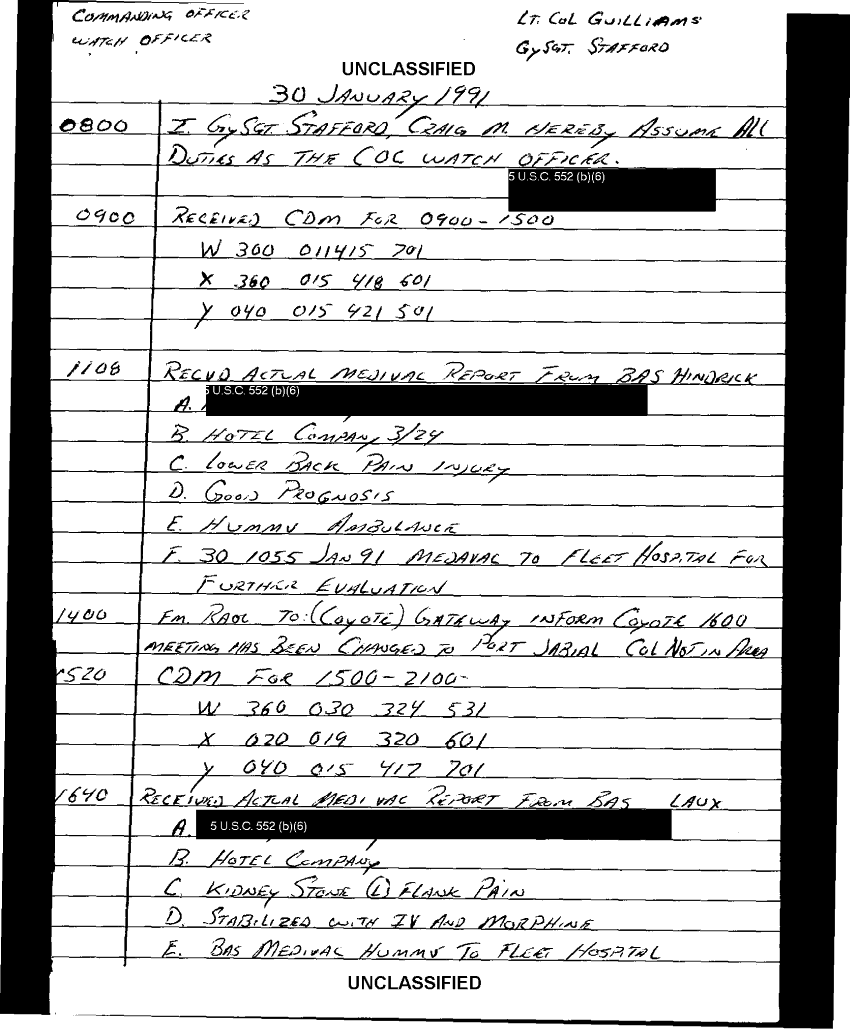 COMMANDING OFFICER LT. COL GUILLIAMS
WATCH OFFICER GySGT. STAFFORD
UNCLASSIFIED
30 JANUARY 1991
0800 I. GySGT STAFFORD, CRAIG M. HEREBY ASSUME ALL
DUTIES AS THE COC WATCH OFFICER.
5 U.S.C. 552 (b)(6)
0900 RECEIVED CDM FOR 0900-1500
W 360 011415 701
X 360 015 418 601
Y 040 015 421 501
1108 RECVD ACTUAL MEDIVAC REPORT FROM BAS HINDRICK
5 U.S.C. 552 (b)(6)
A.
B. HOTEL COMPANY 3/24
C. LOWER BACK PAIN INJURY
D. GOOD PROGNOSIS
E. HUMMV AMBULANCE
F. 30 1055 JAN 91 MEDAVAC TO FLEET HOSPITAL FOR
FURTHER EVALUATION
1400 FM. RAOC TO: (COYOTE) GATEWAY INFORM COYOTE 1600
MEETING HAS BEEN CHANGED TO PORT JABIAL COL NOT IN AREA
1520 CDM FOR 1500-2100-
W 360 030 324 531
X 020 019 320 601
Y 040 015 417 701
1640 RECEIVED ACTUAL MEDIVAC REPORT FROM BAS LAUX
A. 5 U.S.C. 552 (b)(6)
B. HOTEL COMPANY
C. KIDNEY STONE (L) FLANK PAIN
D. STABILIZED WITH IV AND MORPHINE
E. BAS MEDIVAC HUMMV TO FLEET HOSPITAL
UNCLASSIFIED